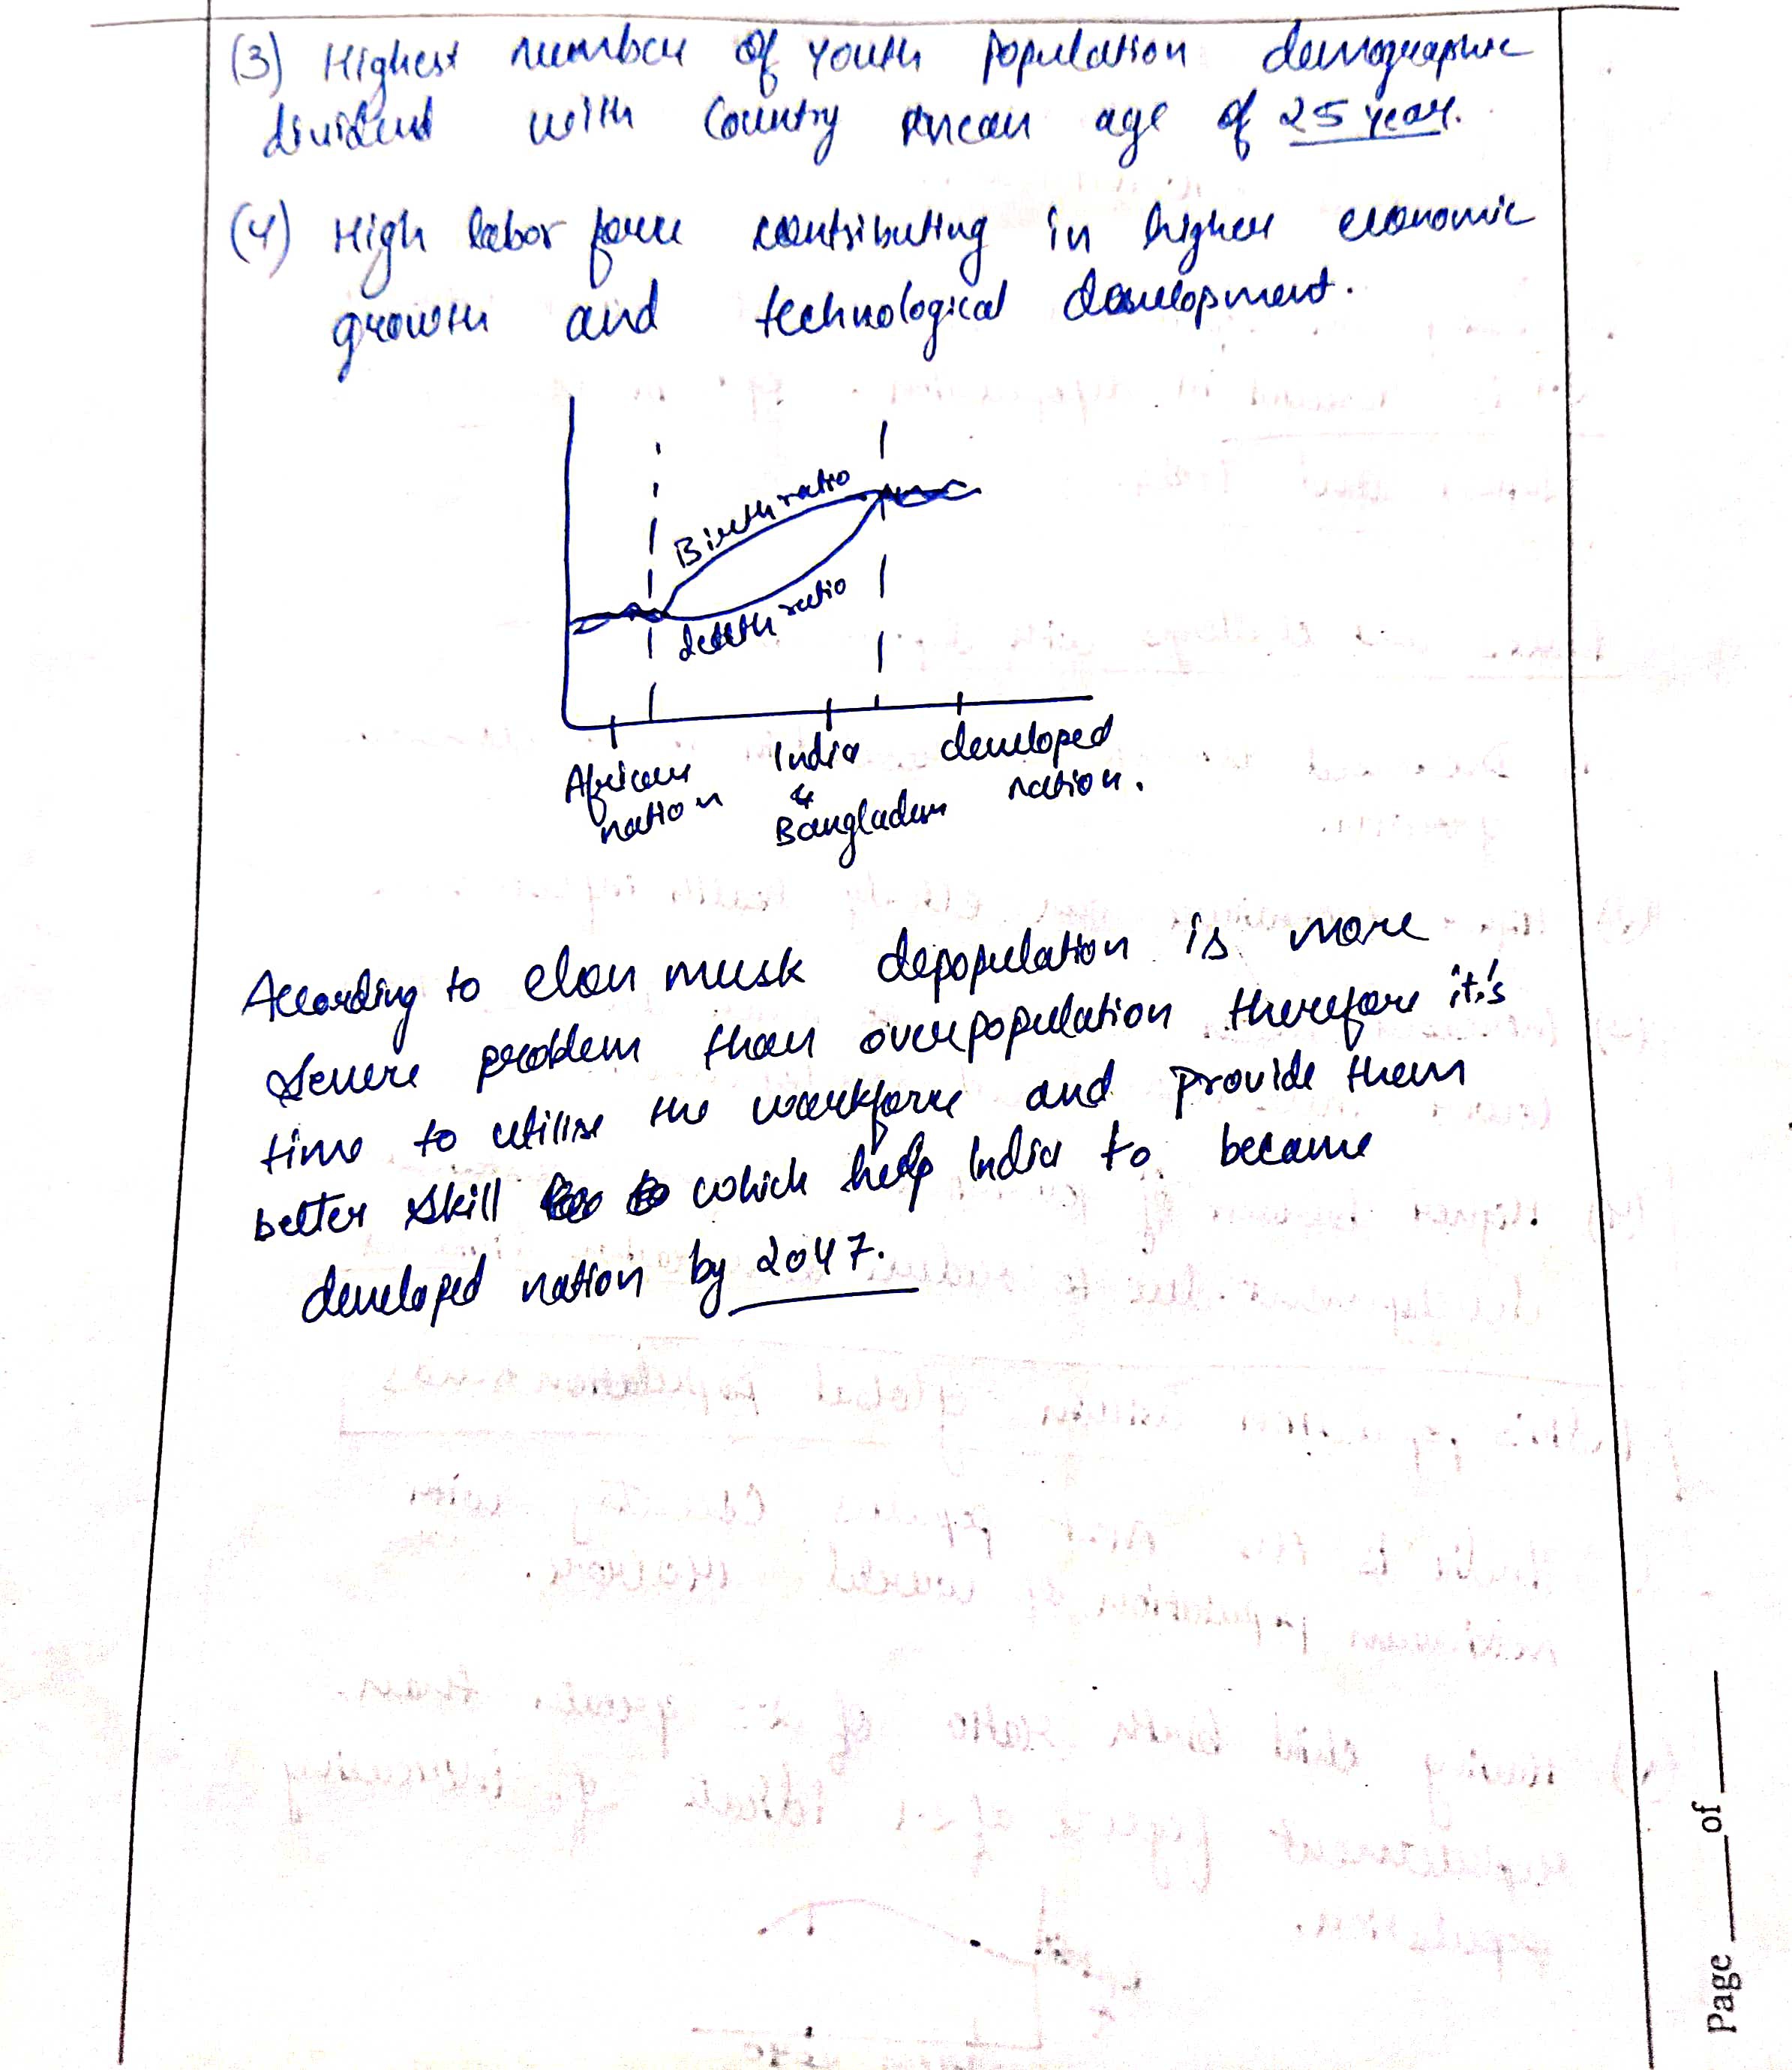 (3) Highest number of youth population demographic
dividend with country mean age of 25 year.
(4) High labor force contributing in higher economic
growth and technological development.
Birth ratio
death ratio
African
nation
India
&
Bangladesh
developed
nation.
According to elon musk depopulation is more
severe problem than overpopulation therefore it's
time to utilise the workforce and provide them
better skill which help India to became
developed nation by 2047.
Page ____ of ____